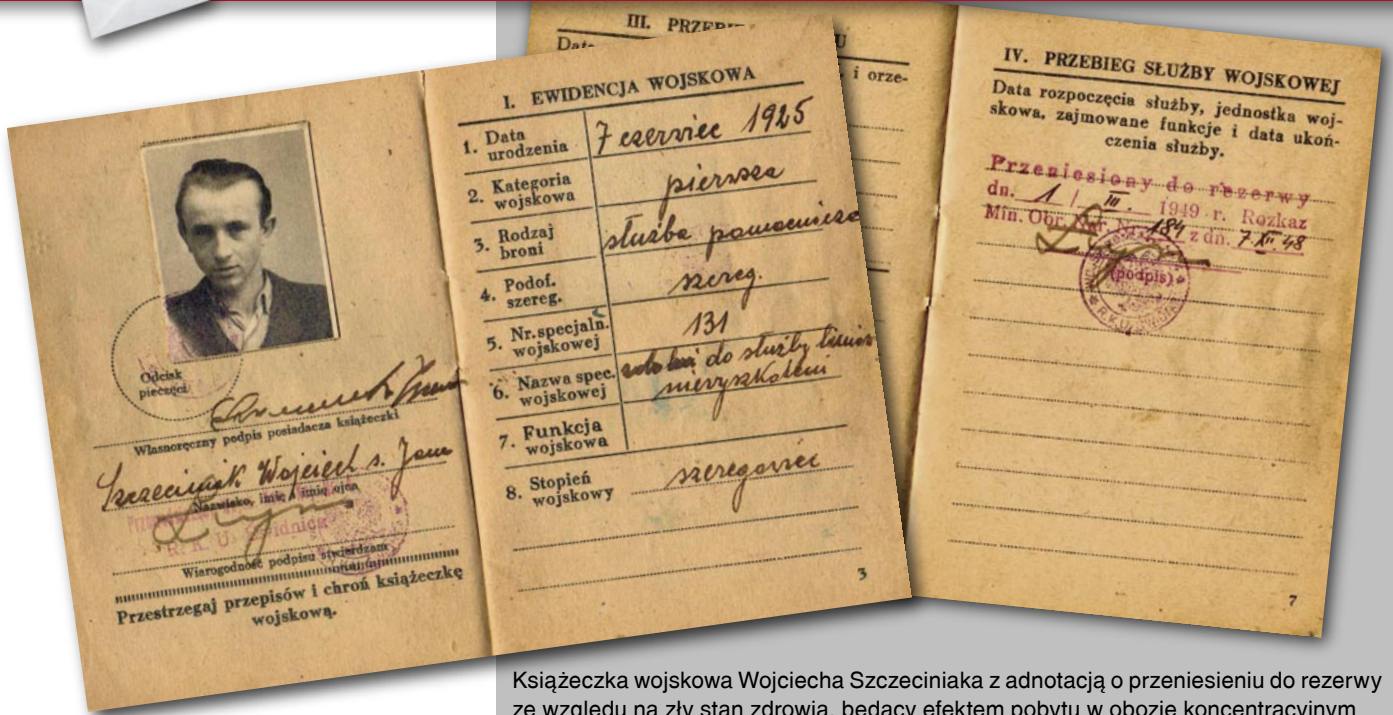 Odcisk
pieczęci
Własnoręczny podpis posiadacza książeczki
Szczeciniak Wojciech s. Jana
Nazwisko, imię i imię ojca
R. K. U. Świdnica
Wiarogodność podpisu stwierdzam
Przestrzegaj przepisów i chroń książeczkę
wojskową.
I. EWIDENCJA WOJSKOWA
1. Data
urodzenia
7 czerwiec 1925
2. Kategoria
wojskowa
pierwsza
3. Rodzaj
broni
służba pomocnicza
4. Podof.
szereg.
szereg.
5. Nr. specjaln.
wojskowej
131
6. Nazwa spec.
wojskowej
zdolni do służby
niewyszkoleni
7. Funkcja
wojskowa
8. Stopień
wojskowy
szeregowiec
3
III. PRZEBI
Data
U
i orze-
IV. PRZEBIEG SŁUŻBY WOJSKOWEJ
Data rozpoczęcia służby, jednostka woj-
skowa, zajmowane funkcje i data ukoń-
czenia służby.
Przeniesiony do rezerwy
dn. 1 / III. 1949 r. Rozkaz
Min. Obr. Nar. Nr. 184 z dn. 7 XII 48
(podpis)
7
Książeczka wojskowa Wojciecha Szczeciniaka z adnotacją o przeniesieniu do rezerwy
ze względu na zły stan zdrowia, będący efektem pobytu w obozie koncentracyjnym